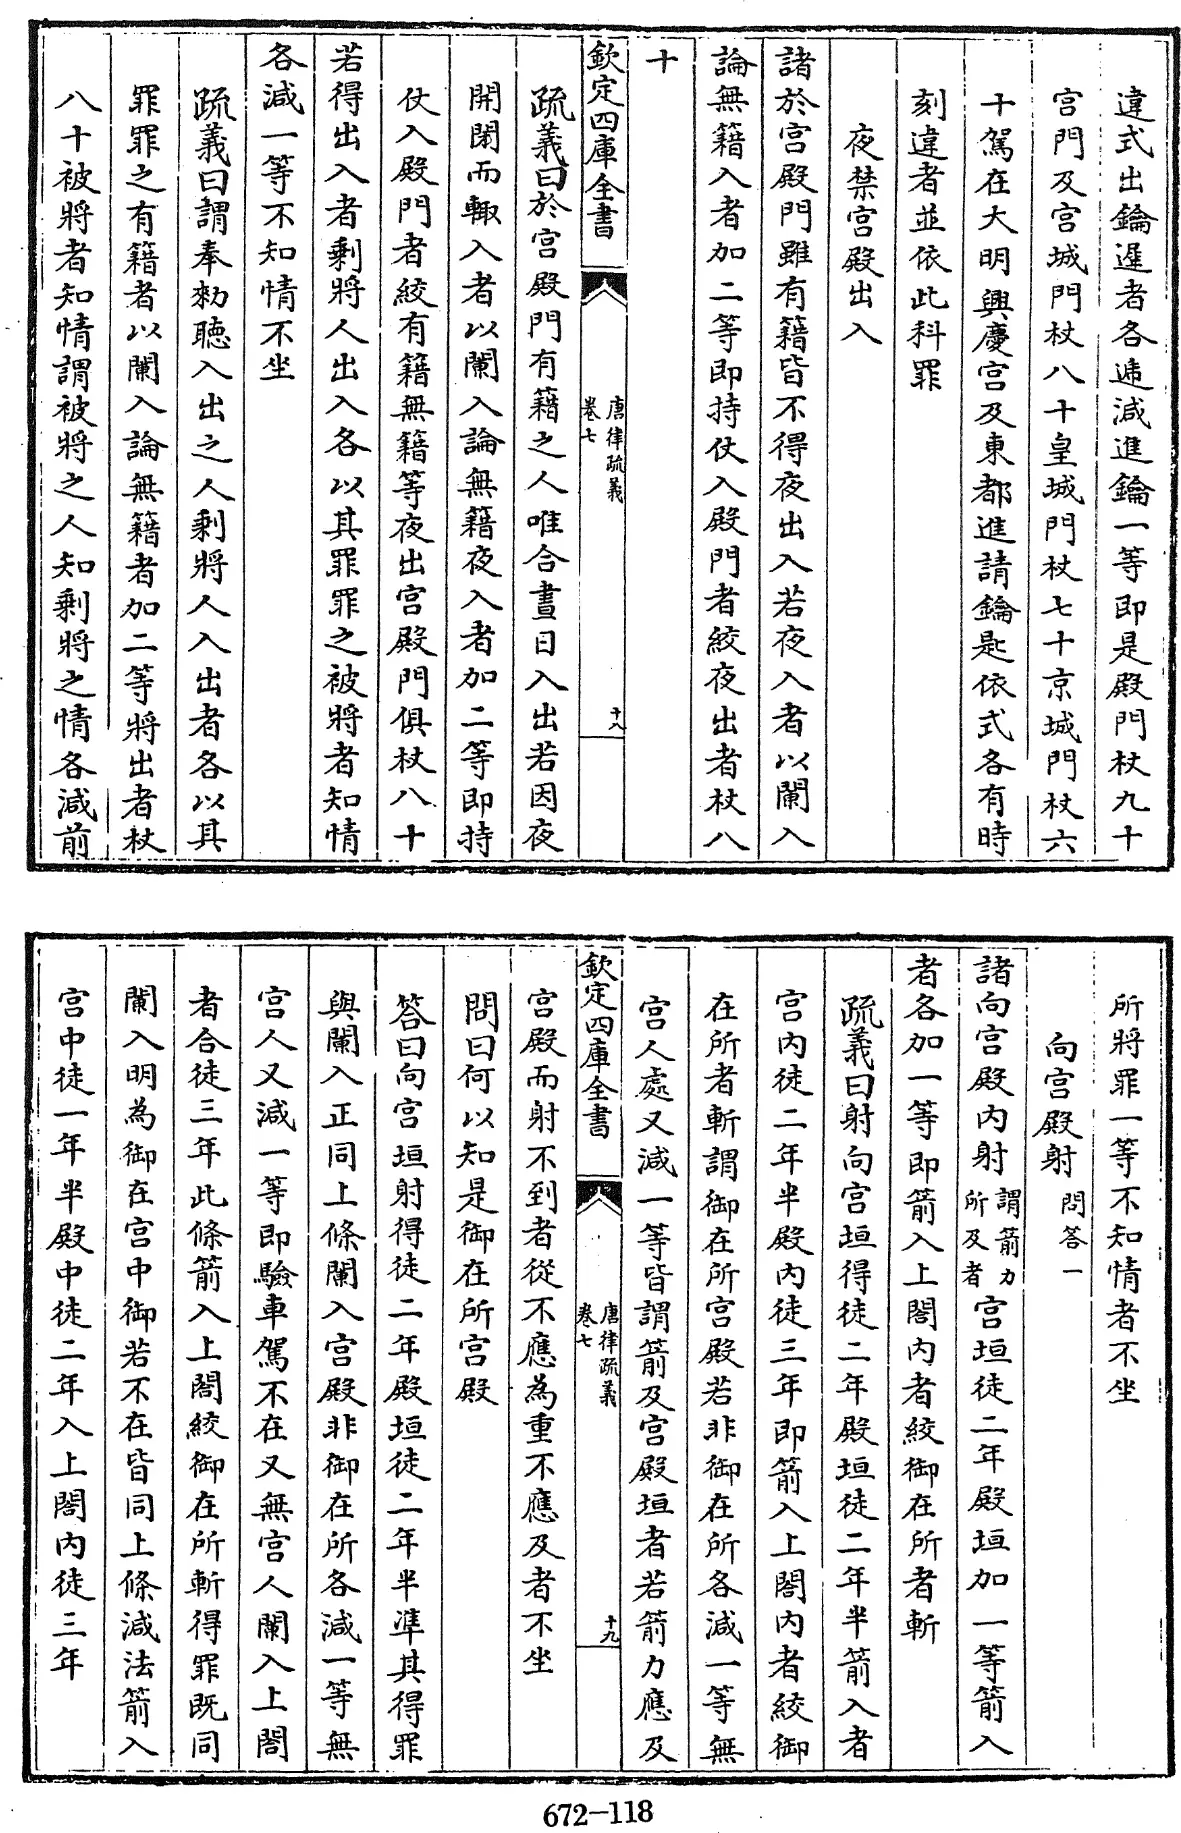 違式出鑰遲者各遞減進鑰一等即是殿門杖九十
宮門及宮城門杖八十皇城門杖七十京城門杖六
十駕在大明興慶宮及東都進請鑰匙依式各有時
刻違者並依此科罪
夜禁宮殿出入
諸於宮殿門雖有籍皆不得夜出入若夜入者以闌入
論無籍入者加二等即持仗入殿門者絞夜出者杖八
十
欽定四庫全書
唐律疏義
卷七
十八
疏義曰於宮殿門有籍之人唯合晝日入出若因夜
開閉而輙入者以闌入論無籍夜入者加二等即持
仗入殿門者絞有籍無籍等夜出宮殿門俱杖八十
若得出入者剩將人出入各以其罪罪之被將者知情
各減一等不知情不坐
疏義曰謂奉勑聽入出之人剩將人入出者各以其
罪罪之有籍者以闌入論無籍者加二等將出者杖
八十被將者知情謂被將之人知剩將之情各減前
所將罪一等不知情者不坐
向宮殿射 問答一
諸向宮殿內射謂箭力所及者宮垣徒二年殿垣加一等箭入
者各加一等即箭入上閤內者絞御在所者斬
疏義曰射向宮垣得徒二年殿垣徒二年半箭入者
宮內徒二年半殿內徒三年即箭入上閤內者絞御
在所者斬謂御在所宮殿若非御在所各減一等無
宮人處又減一等皆謂箭及宮殿垣者若箭力應及
欽定四庫全書
唐律疏義
卷七
十九
宮殿而射不到者從不應為重不應及者不坐
問曰何以知是御在所宮殿
答曰向宮垣射得徒二年殿垣徒二年半準其得罪
與闌入正同上條闌入宮殿非御在所各減一等無
宮人又減一等即驗車駕不在又無宮人闌入上閤
者合徒三年此條箭入上閤絞御在所斬得罪既同
闌入明為御在宮中御若不在皆同上條減法箭入
宮中徒一年半殿中徒二年入上閤內徒三年
672-118